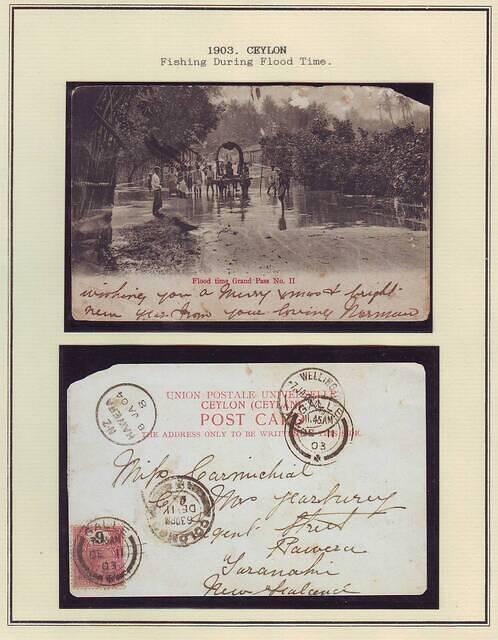 1903. CEYLON
Fishing During Flood Time.
Flood time Grand Pass No. II
wishing you a Merry Xmas & bright
new year from your loving Norman
UNION POSTALE UNIVERSELLE
CEYLON (CEYLAN)
POST CARD
THE ADDRESS ONLY TO BE WRITTEN THIS SIDE.
HAWERA
N.Z
8 JA 04
WELLING
GALLE
11.45AM
DE 11
03
Miss Carmichial
Mrs Yearbury
Regent Street
Hawera
Taranaki
New Zealand
COLOMBO
6.30PM
DE 11
GALLE
DE 11
03
6